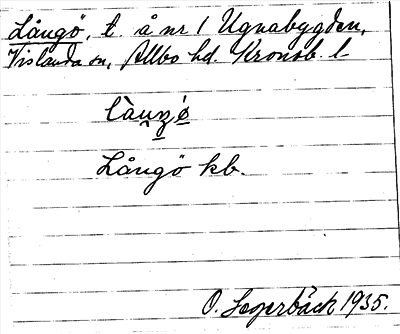 Långö, t. å nr 1 Ugnabygden,
Vislanda sn, Allbo hd. Kronob. l.
Långö kb.
O. Segerbäck 1935.